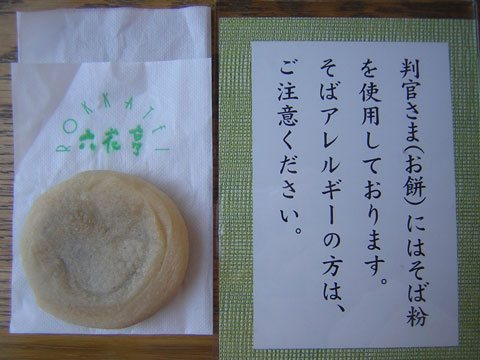 ROKKATEI
六花亭
判官さま(お餅)にはそば粉
を使用しております。
そばアレルギーの方は、
ご注意ください。